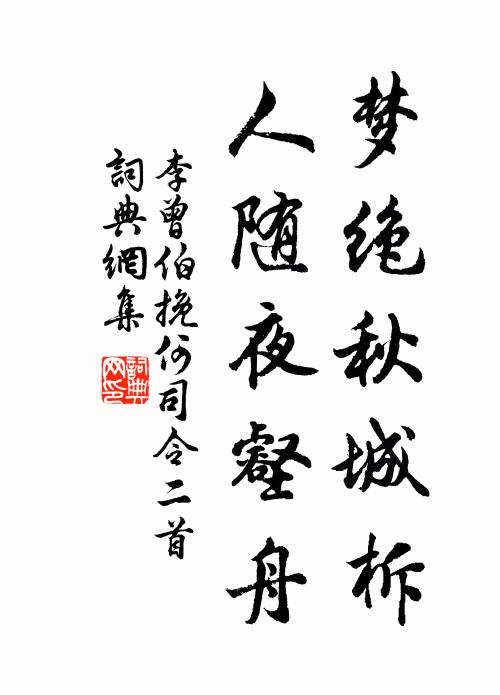 梦绝秋城柝
人随夜壑舟
李曾伯挽何司令二首
詞典網集
詞典网印